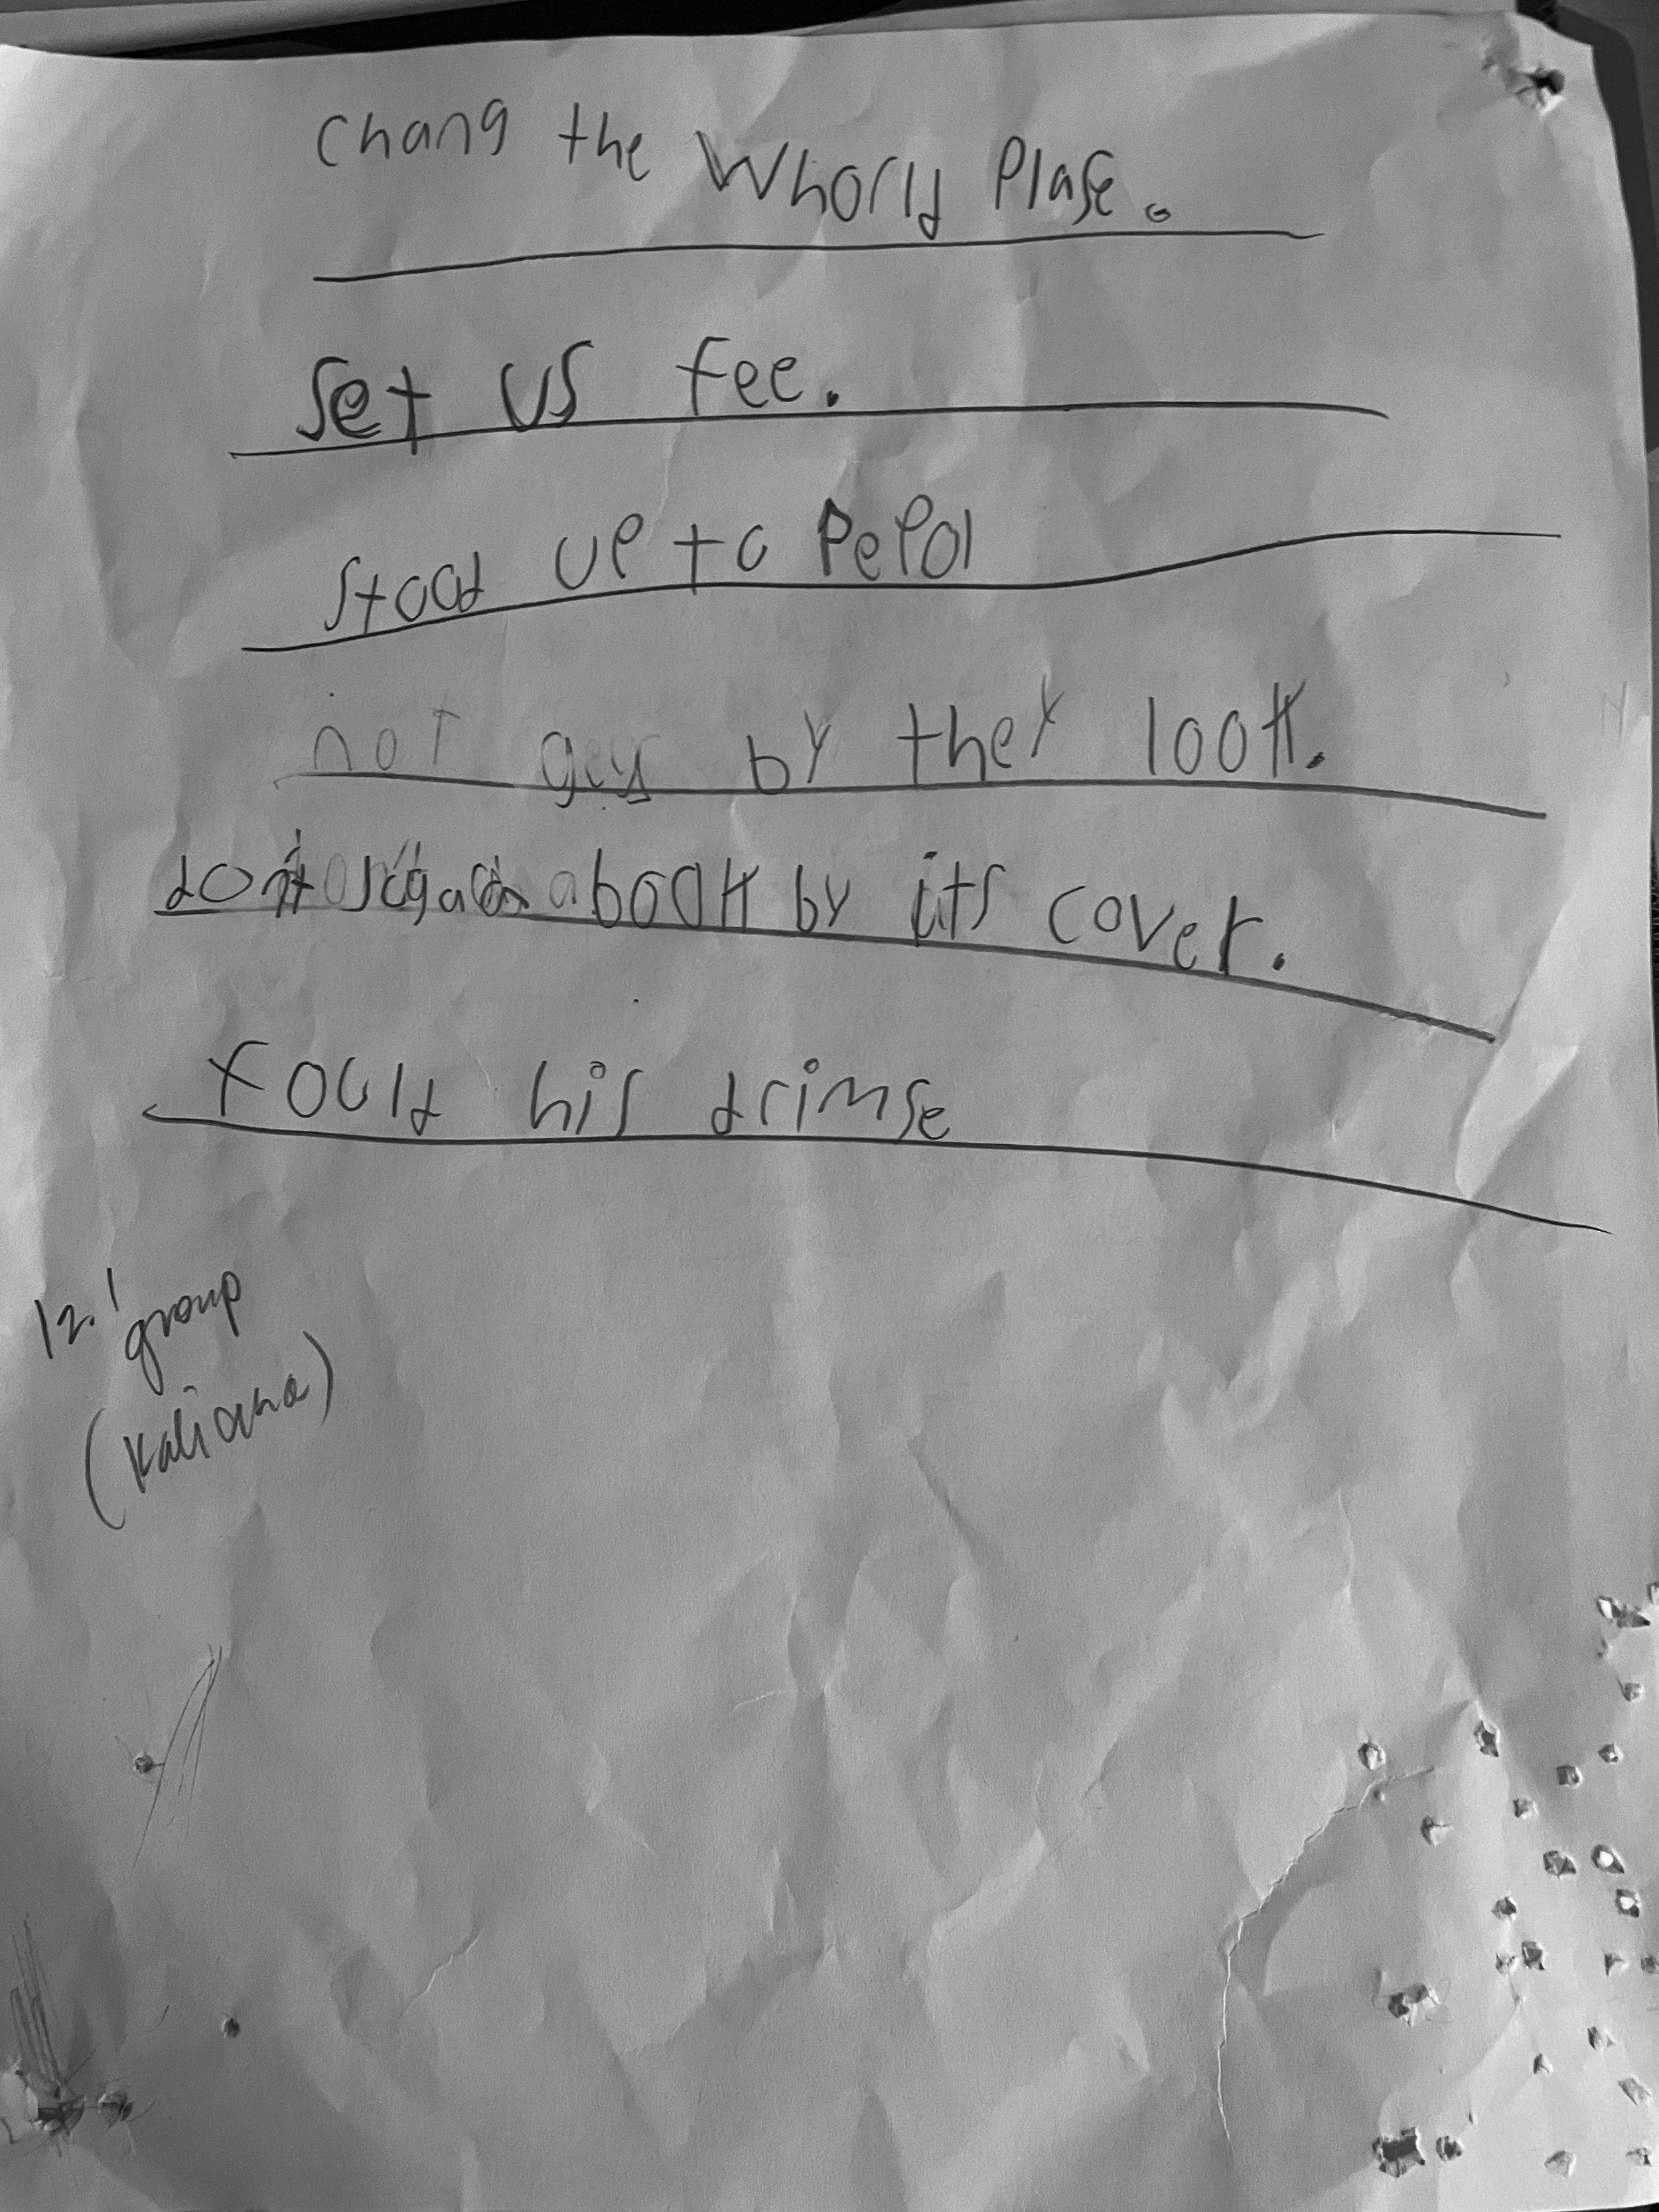 chang the Whorld Plase.
Set us fee.
stood up to Pepol
not by they look.
dont a book by its cover.
fould his drimse
12.1 group
(Kaliana)